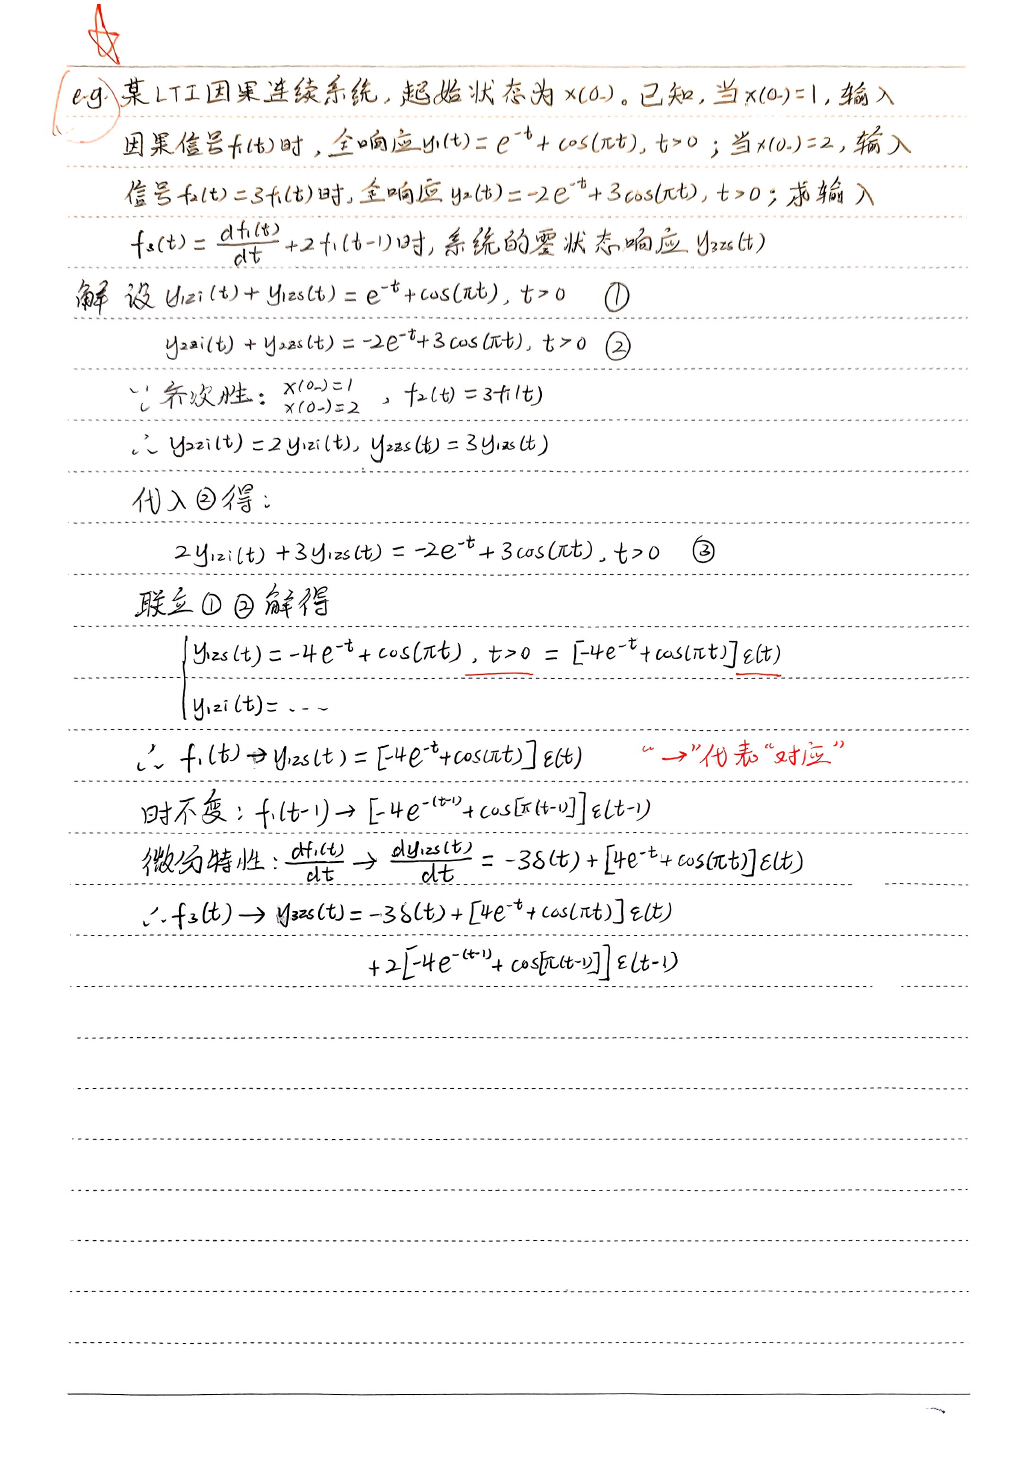 e.g. 某LTI因果连续系统，起始状态为x(0-)。已知，当x(0-)=1，输入
因果信号f₁(t)时，全响应y₁(t)=e^{-t}+cos(πt)，t>0；当x(0-)=2，输入
信号f₂(t)=3f₁(t)时，全响应y₂(t)=-2e^{-t}+3cos(πt)，t>0；求输入
f₃(t)=df₁(t)/dt+2f₁(t-1)时，系统的零状态响应y₃zs(t)
解 设 y₁zi(t)+y₁zs(t)=e^{-t}+cos(πt)，t>0 ①
y₂zi(t)+y₂zs(t)=-2e^{-t}+3cos(πt)，t>0 ②
∵ 齐次性：x(0-)=1 x(0-)=2，f₂(t)=3f₁(t)
∴ y₂zi(t)=2y₁zi(t)，y₂zs(t)=3y₁zs(t)
代入②得：
2y₁zi(t)+3y₁zs(t)=-2e^{-t}+3cos(πt)，t>0 ③
联立①②解得
{y₁zs(t)=-4e^{-t}+cos(πt)，t>0 =[-4e^{-t}+cos(πt)]ε(t)
y₁zi(t)=...
∴ f₁(t)→y₁zs(t)=[-4e^{-t}+cos(πt)]ε(t) “→”代表“对应”
时不变：f₁(t-1)→[-4e^{-(t-1)}+cos[π(t-1)]]ε(t-1)
微分特性：df₁(t)/dt→dy₁zs(t)/dt=-3δ(t)+[4e^{-t}+cos(πt)]ε(t)
∴f₃(t)→y₃zs(t)=-3δ(t)+[4e^{-t}+cos(πt)]ε(t)
+2[-4e^{-(t-1)}+cos[π(t-1)]]ε(t-1)